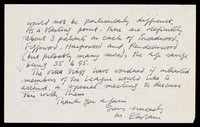 would not be particularly difficult.
As a starting point. there are definitely
about 3 patients in each of Broadwood,
Fifewood, Harwood and Pendlewood
(but probably many more). The age range
being 35 to 55.
The other staff have wondered if interested
members of the League would like to
attend a special meeting to discuss
this with them.
Thank you again.
Yours sincerely